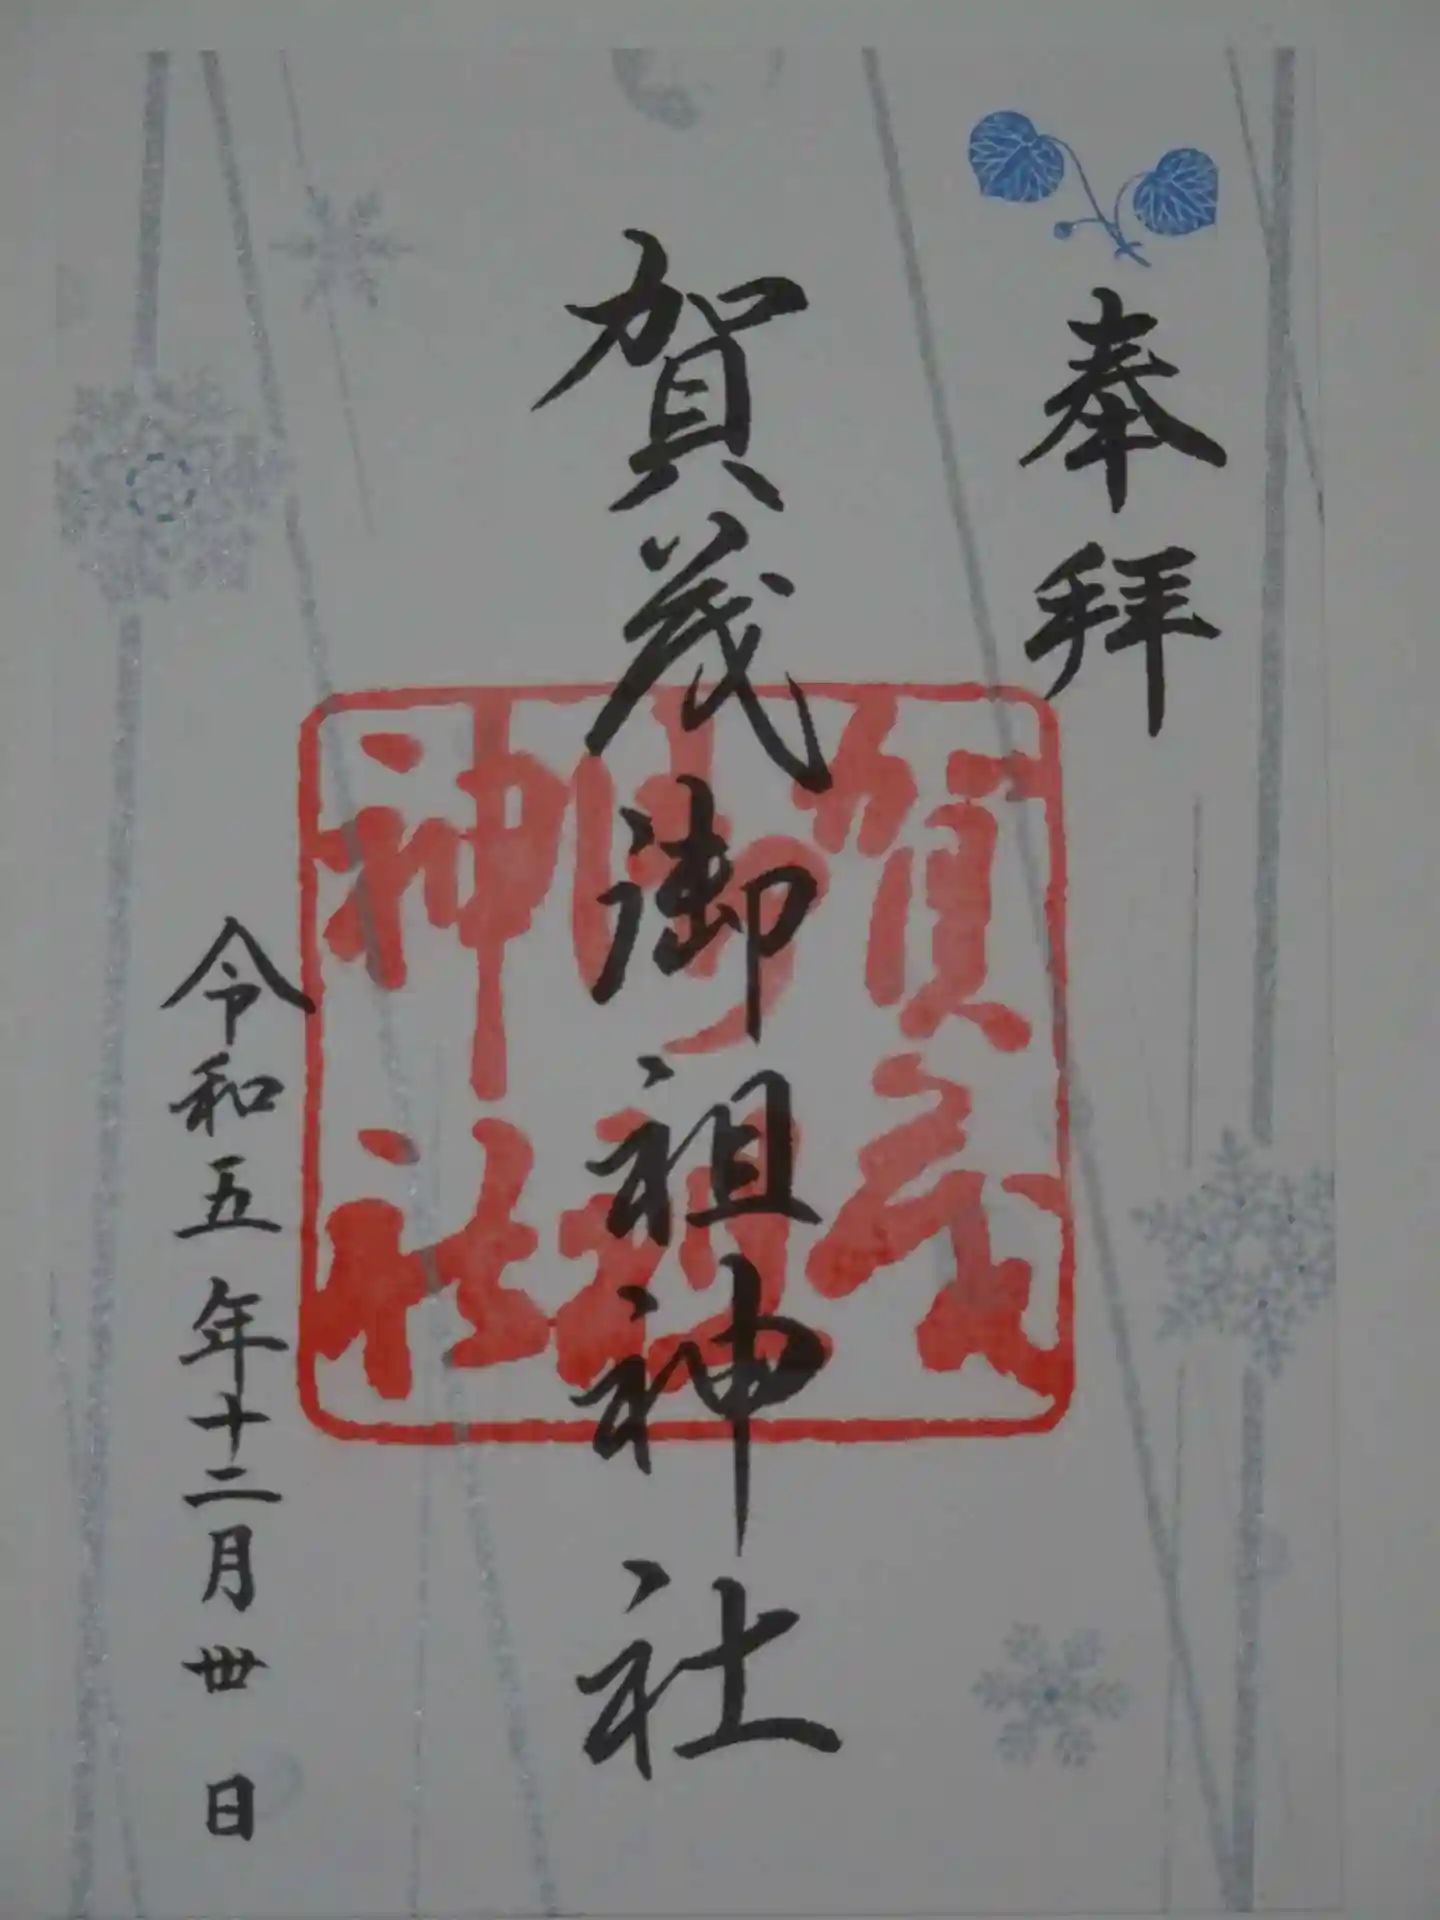 奉拝
賀茂御祖神社
賀茂
御祖
神社
令和五年十二月丗日